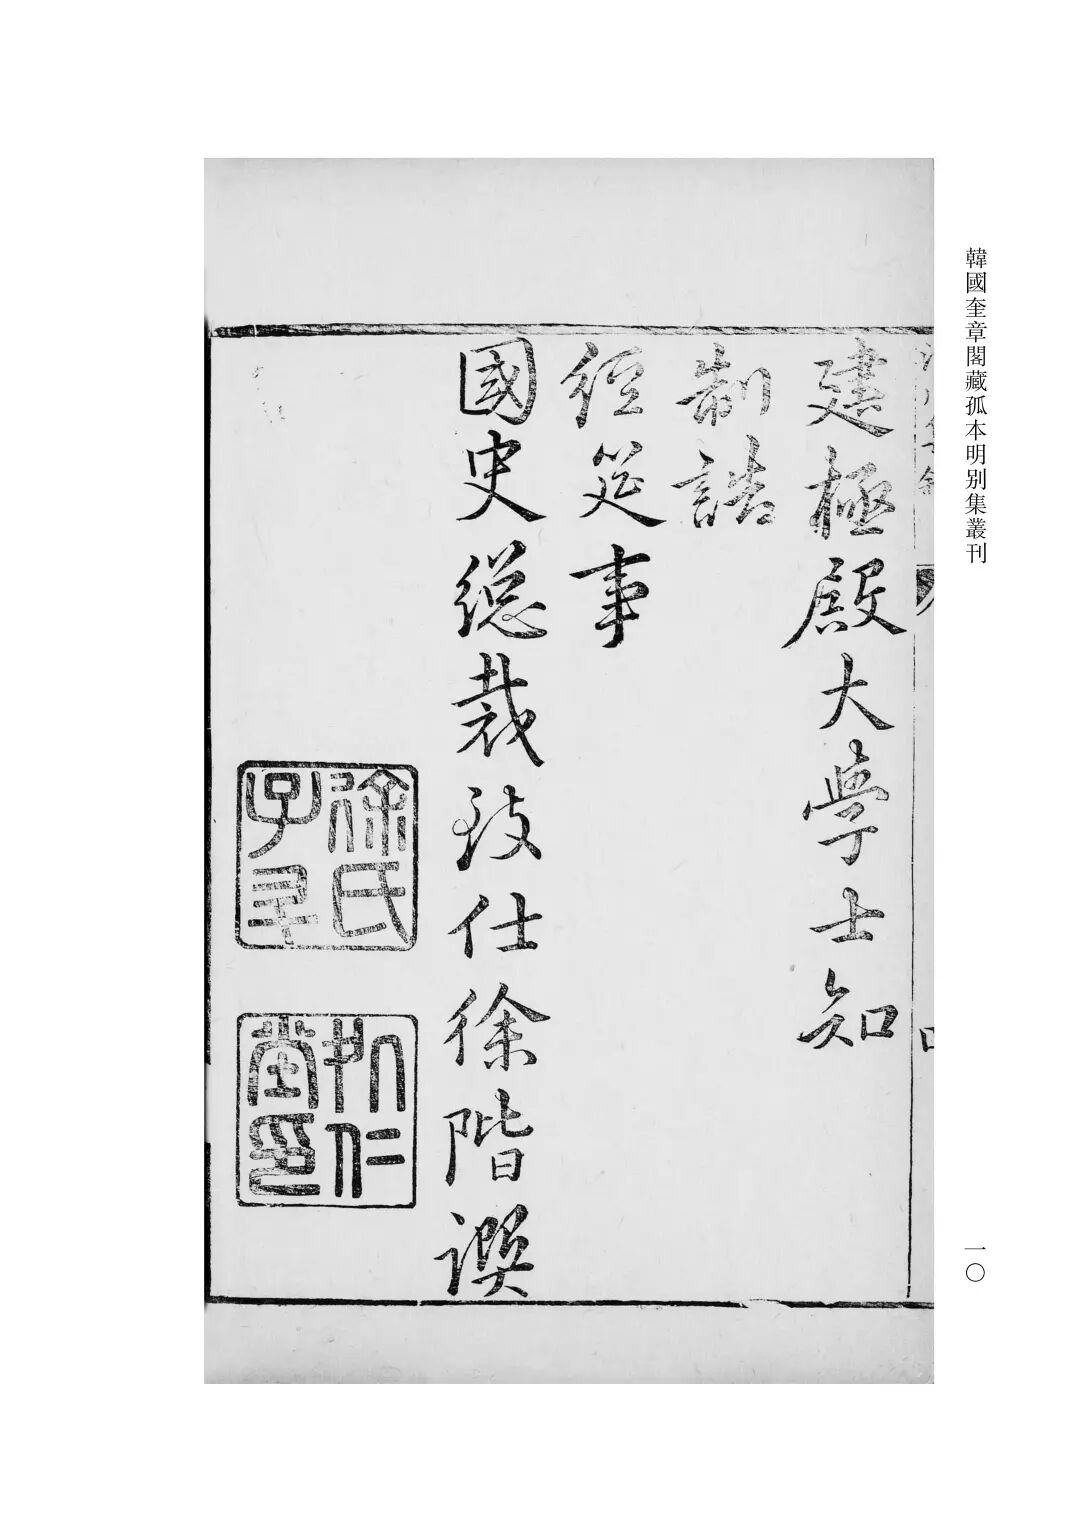 韓國奎章閣藏孤本明别集叢刊
建極殿大學士知
制誥
經筵事
國史總裁致仕徐階譔
徐氏子升
仁堂印
一〇